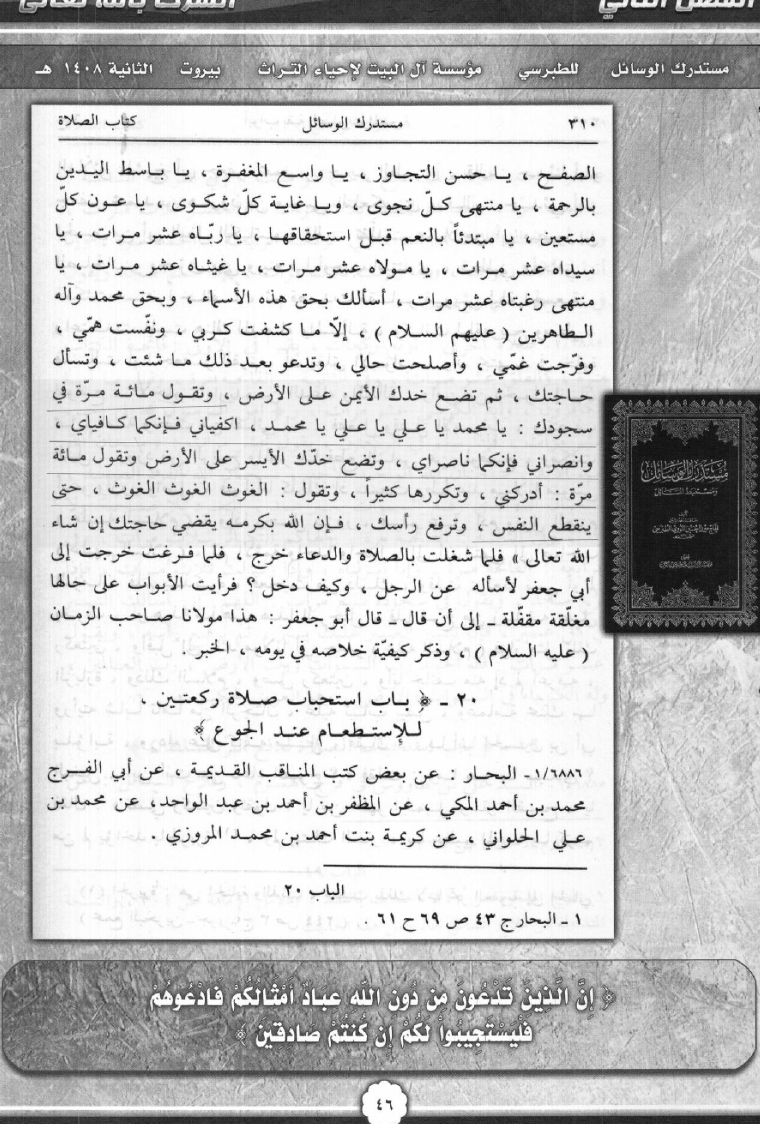 الفصل الثاني الشرك بالله تعالى
مستدرك الوسائل للطبرسي مؤسسة آل البيت لإحياء التراث بيروت الثانية ١٤٠٨ هـ
٣١٠ مستدرك الوسائل كتاب الصلاة
الصفح ، يا حسن التجاوز ، يا واسع المغفرة ، يا باسط اليدين
بالرحمة ، يا منتهى كلّ نجوى ، ويا غاية كلّ شكوى ، يا عون كلّ
مستعين ، يا مبتدئاً بالنعم قبل استحقاقها ، يا ربّاه عشر مرات ، يا
سيداه عشر مرات ، يا مولاه عشر مرات ، يا غيثاه عشر مرات ، يا
منتهى رغبتاه عشر مرات ، أسألك بحق هذه الأسماء ، وبحق محمد وآله
الطاهرين ( عليهم السلام ) ، إلّا ما كشفت كربي ، ونفّست همّي ،
وفرّجت غمّي ، وأصلحت حالي ، وتدعو بعد ذلك ما شئت ، وتسأل
حاجتك ، ثم تضع خدك الأيمن على الأرض ، وتقول مائة مرّة في
سجودك : يا محمد يا علي يا علي يا محمد ، اكفياني فإنكما كافياي ،
وانصراني فإنكما ناصراي ، وتضع خدّك الأيسر على الأرض وتقول مائة
مرّة : أدركني ، وتكررها كثيراً ، وتقول : الغوث الغوث الغوث ، حتى
ينقطع النفس ، وترفع رأسك ، فإن الله بكرمه يقضي حاجتك إن شاء
الله تعالى » فلما شغلت بالصلاة والدعاء خرج ، فلما فرغت خرجت إلى
أبي جعفر لأسأله عن الرجل ، وكيف دخل ؟ فرأيت الأبواب على حالها
مغلّقة مقفّلة ـ إلى أن قال ـ قال أبو جعفر : هذا مولانا صاحب الزمان
( عليه السلام ) ، وذكر كيفيّة خلاصه في يومه ، الخبر .
٢٠ ـ ﴿ باب استحباب صلاة ركعتين .
للإستطعام عند الجوع ﴾
١/٦٨٨٦- البحار : عن بعض كتب المناقب القديمة ، عن أبي الفرج
محمد بن أحمد المكي ، عن المظفر بن أحمد بن عبد الواحد، عن محمد بن
علي الحلواني ، عن كريمة بنت أحمد بن محمد المروزي .
الباب ٢٠
١ ـ البحار ج ٤٣ ص ٦٩ ح ٦١ .
مستدرك الوسائل
﴿ إِنَّ الَّذِينَ تَدْعُونَ مِن دُونِ اللَّهِ عِبَادٌ أَمْثَالُكُمْ فَادْعُوهُمْ
فَلْيَسْتَجِيبُواْ لَكُمْ إِن كُنتُمْ صَادِقِينَ ﴾
٤٦